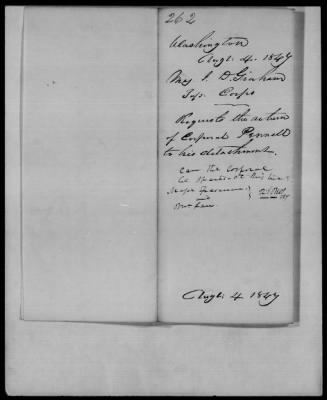 262
Washington
Augt. 4. 1847
Maj J. D. Graham
Top. Corps
Requests the return
of Corporal Pennell
to his detachment.
can the Corporal
be
Major
Augt. 4 1847